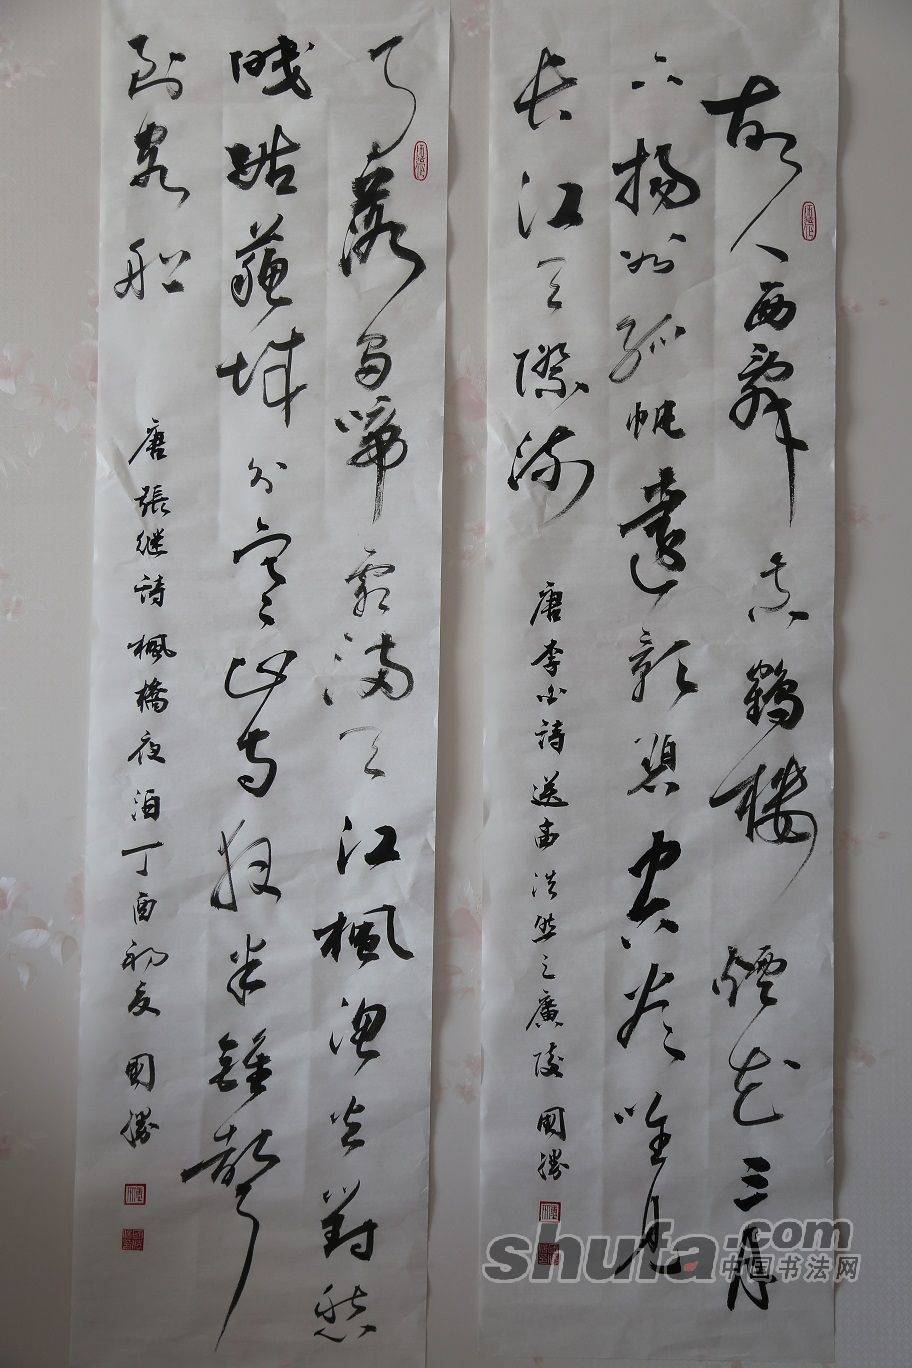 故人西辭黄鶴樓煙花三月
下揚州孤帆遠影碧空盡唯見
長江天際流
唐李白詩送孟浩然之廣陵 國勝
月落烏啼霜滿天江楓漁火對愁
眠姑蘇城外寒山寺夜半鐘聲
到客船
唐張继詩楓橋夜泊丁酉初夏 國勝
shufa.com
中国书法网